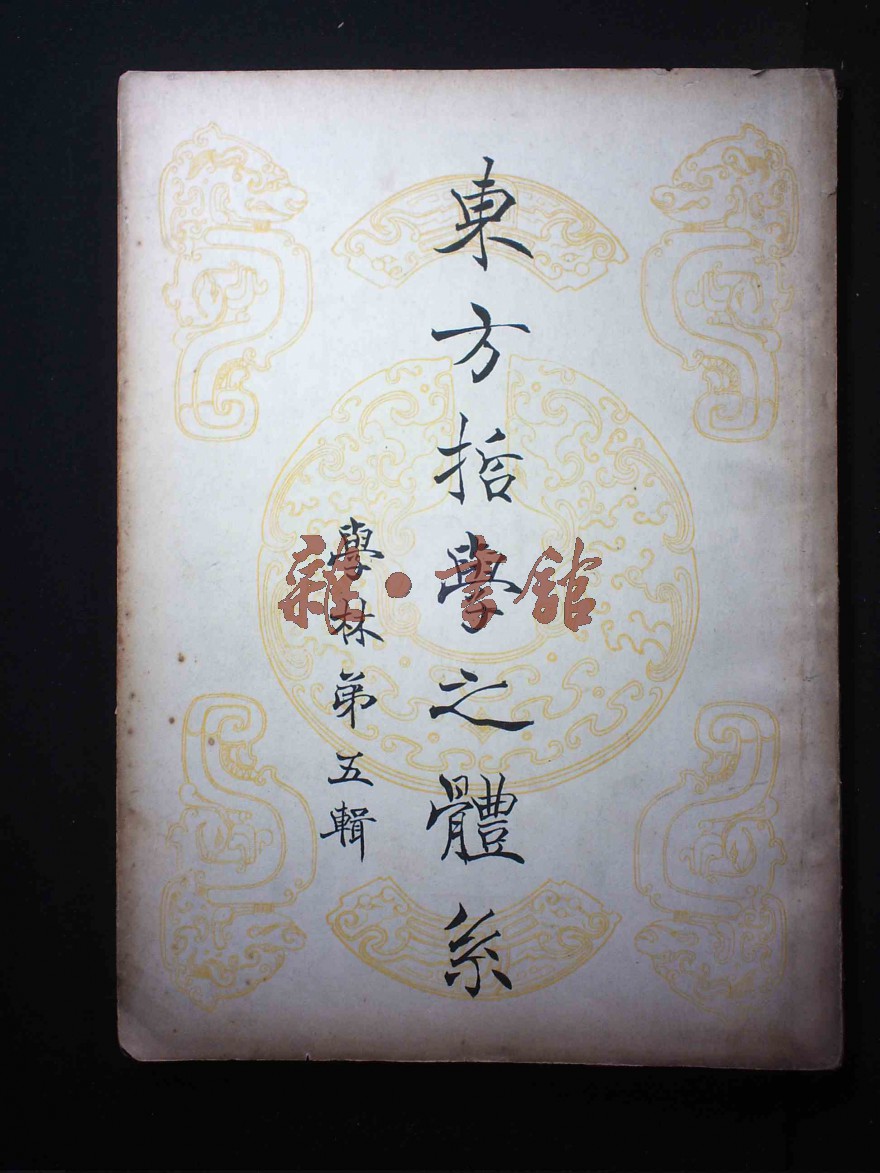 東方哲學之體系
學林第五輯
雜·書館